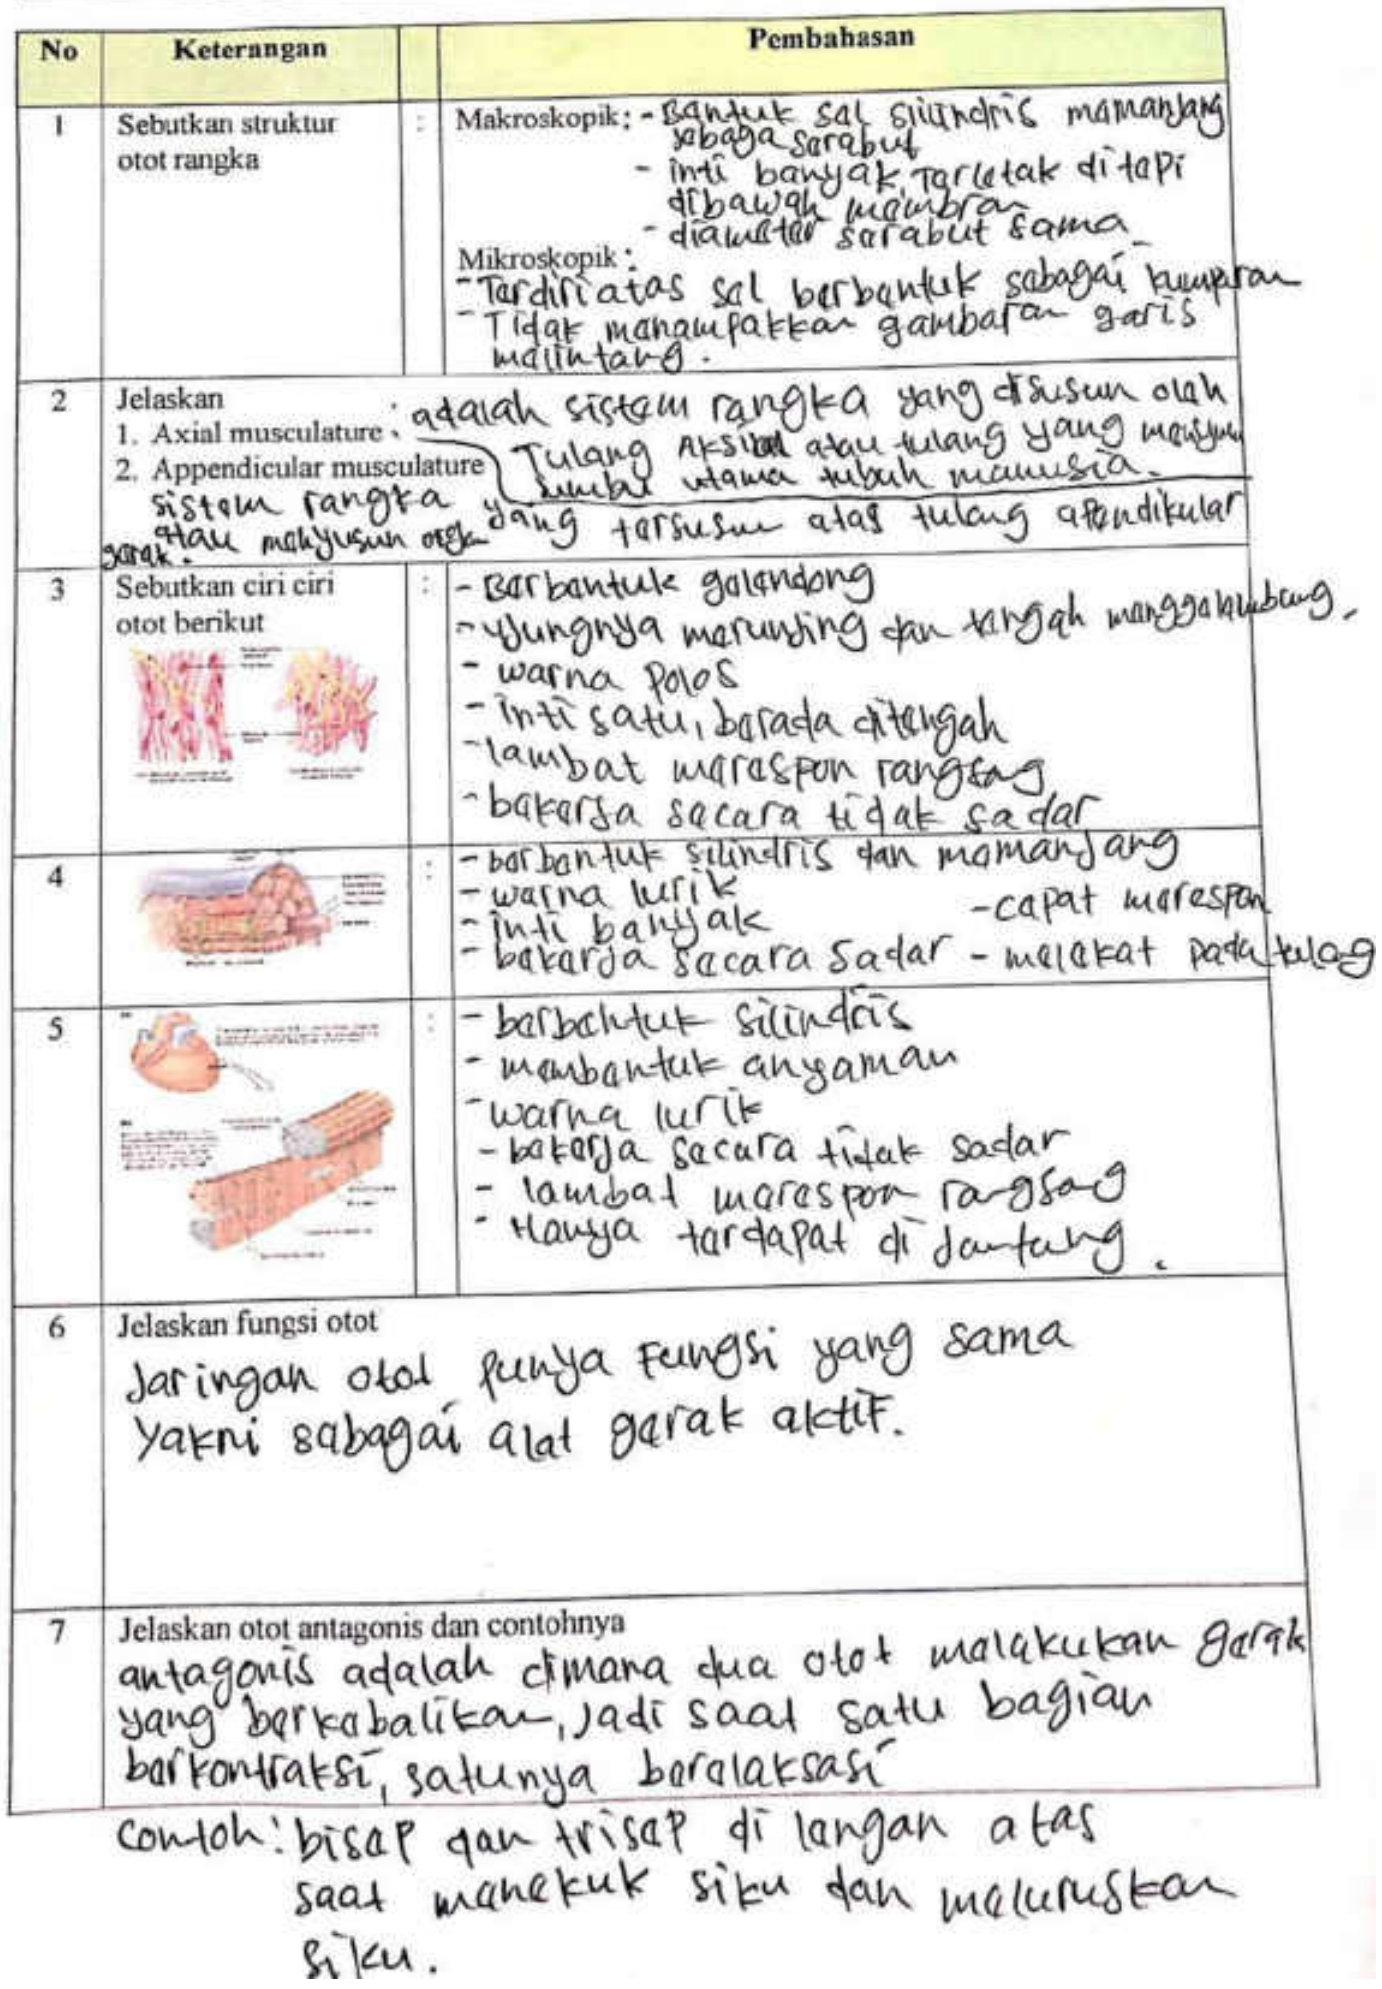 No Keterangan Pembahasan
1 Sebutkan struktur otot rangka :
Makroskopik : - Bentuk sel silindris memanjang
sebaga serabut
- inti banyak, Terletak di tepi
dibawah membran
- diameter serabut sama
Mikroskopik :
- Terdiri atas sel berbentuk sebagai kumparan
- Tidak menampakkan gambaran garis
melintang.
2 Jelaskan
1. Axial musculature : adalah sistem rangka yang disusun oleh
Tulang Aksial atau tulang yang menyusun
sumbu utama tubuh manusia.
2. Appendicular musculature
sistem rangka yang tersusun atas tulang apendikular
atau menyusun organ
gerak.
3 Sebutkan ciri ciri
otot berikut :
- Berbentuk gelendong
- ujungnya meruncing dan tengah menggelembung.
- warna polos
- inti satu, berada ditengah
- lambat merespon rangsang
- bekerja secara tidak sadar
4 :
- berbentuk silindris dan memanjang
- warna lurik
- inti banyak - cepat merespon
- bekerja secara sadar - melekat pada tulang
5 :
- berbentuk silindris
- membentuk anyaman
- warna lurik
- bekerja secara tidak sadar
- lambat merespon rangsang
- Hanya terdapat di jantung.
6 Jelaskan fungsi otot
Jaringan otot punya Fungsi yang sama
Yakni sebagai alat gerak aktif.
7 Jelaskan otot antagonis dan contohnya
antagonis adalah dimana dua otot melakukan gerak
yang berkebalikan, jadi saat satu bagian
berkontraksi, satunya berelaksasi
contoh : bisep dan trisep di lengan atas
saat menekuk siku dan meluruskan
siku.